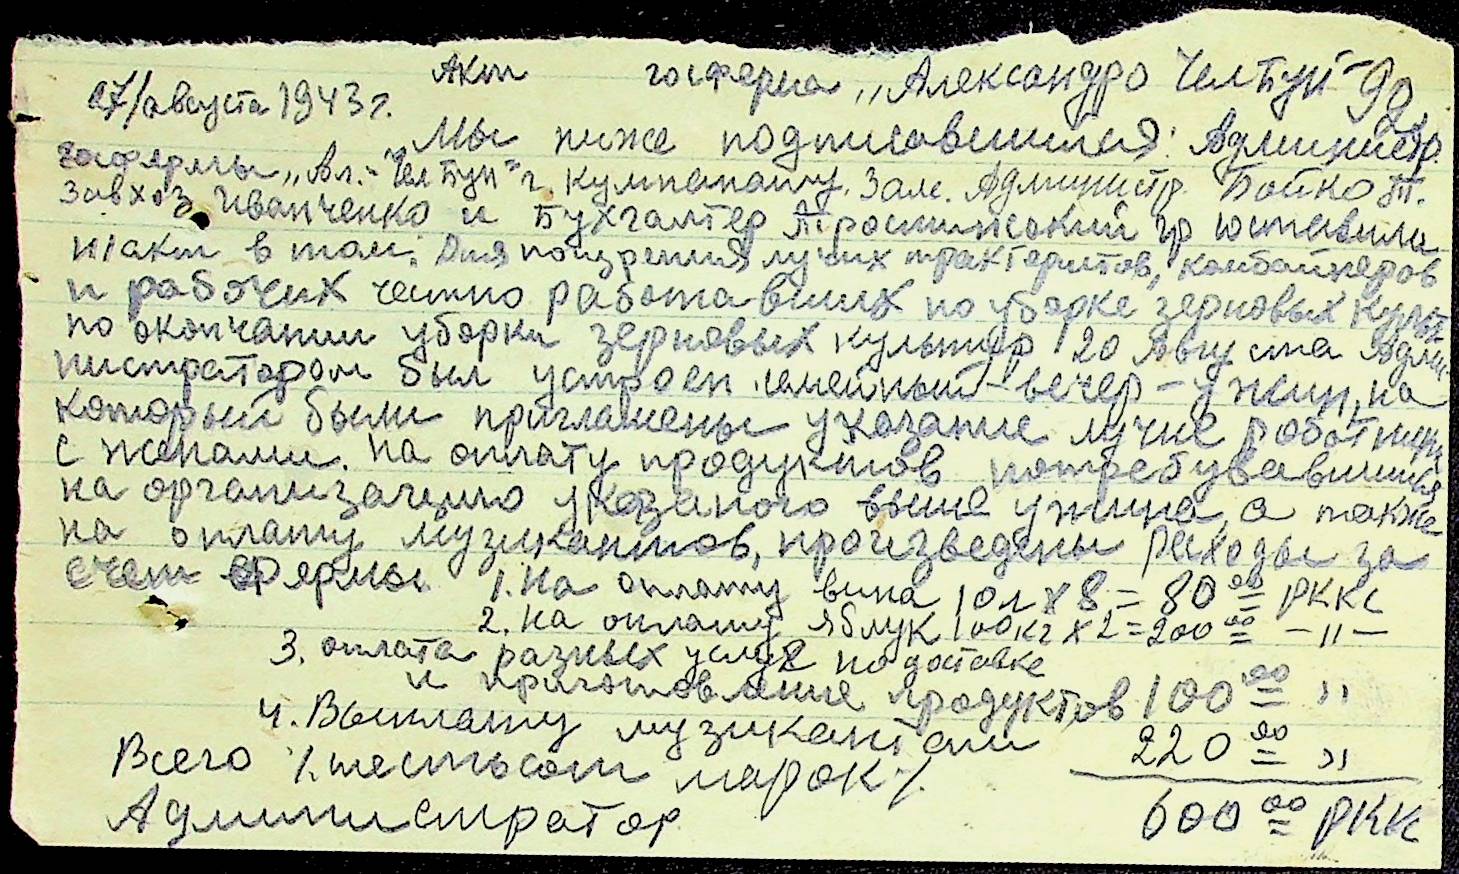 Акт госферма „Александро Челбун"
27/августа 1943 г.
Мы ниже подписавшиеся: Администр.
госфермы „Ал.-Челбун" г. Кумпанашу. Зам. Администр. Бойко
Завхоз Иванченко и Бухгалтер составили
н/акт в том: Для поозрения лучих трактористов, комбайнеров
и рабочих честно работавших по уборке зерновых культ.
по окончании уборки зерновых культур 20 Августа Адми
нистратором был устроен семейный-вечер-ужин, на
который были приглашены указание лучие работники
с женами. На оплату продуктов потребувавшихся
на организацию указаного выше ужина, а также
на оплату музикантов, произведены расходы за
счет фермы. 1. На оплату вина 10л х 8 = 80 00 РККС
2. На оплату яблук 100кг х 2 = 200 00 —"—
3. оплата разных услуг по доставке
и приготовление продуктов 100 00 "
4. Выплату музикантам 220 00 "
Всего /.шестьсот марок/. 600 00 РККС
Администратор